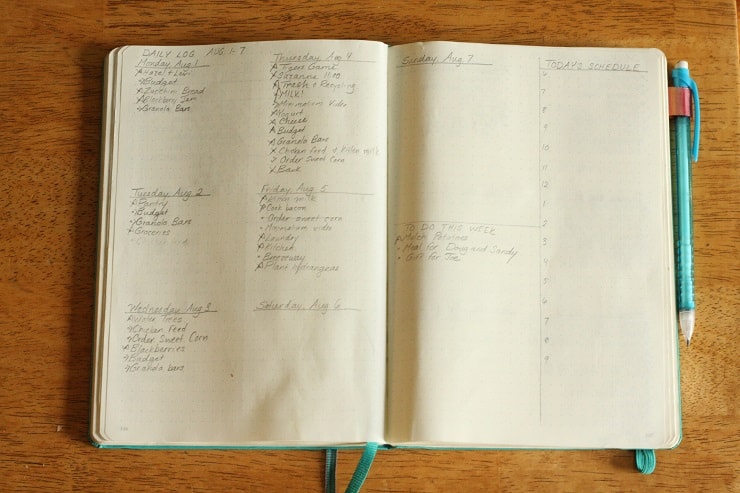 DAILY LOG AUG. 1-7
Monday, Aug 1
Hazel + Levi
Budget
Zucchini Bread
Blackberry Jam
Granola Bars
Tuesday, Aug 2
Pantry
Budget
Granola Bars
Groceries
Wednesday, Aug 3
Water Trees
Chicken Feed
Order Sweet Corn
Blackberries
Budget
Granola bars
Thursday, Aug 4
Game
Suzanne 11:00
Trash + Recycling
MILK!
Minimalism Video
Yogurt
Cheese
Budget
Granola Bars
Chicken Feed + Kitten milk
Order Sweet Corn
Bank
Friday, Aug. 5
milk
Cook bacon
Order sweet corn
Minimalism video
Laundry
Kitchen
Entryway
Plant
Saturday, Aug 6
Sunday, Aug. 7
TO DO THIS WEEK
Mulch Potatoes
Meal for Doug and Sandy
Gift for Joe
TODAY'S SCHEDULE
6
7
8
9
10
11
12
1
2
3
4
5
6
7
8
9